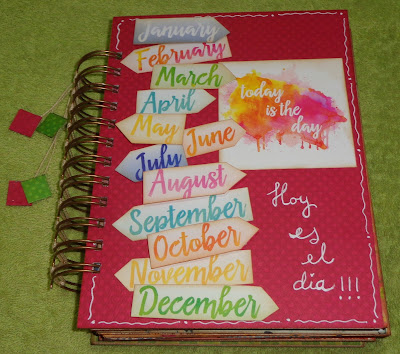 January
February
March
April
May
June
July
August
September
October
November
December
today
is the
day
Hoy
es
el
dia!!!